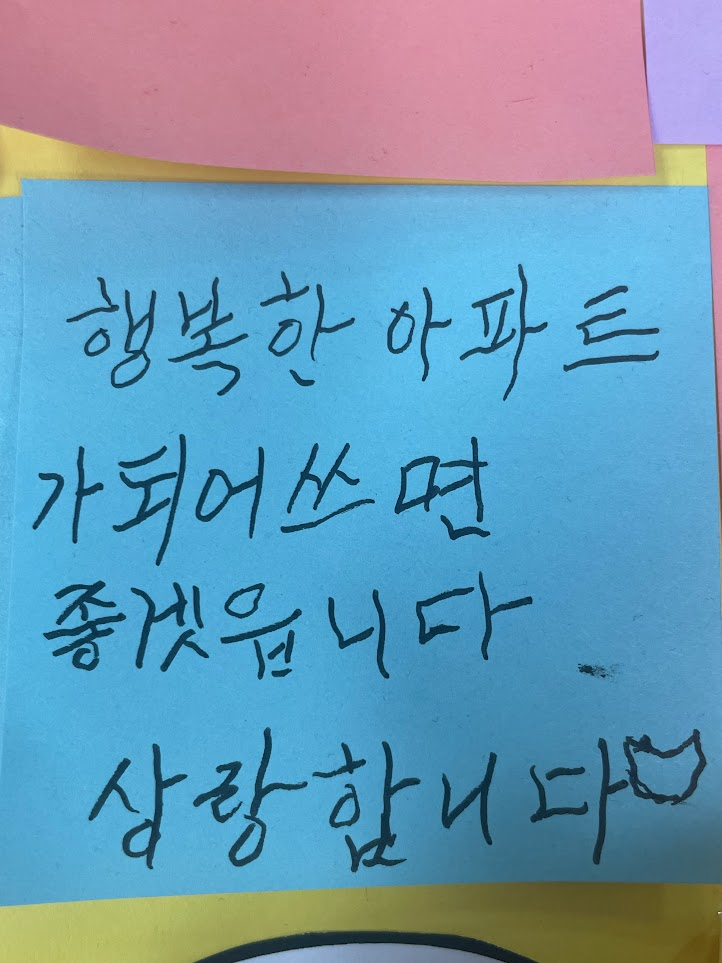 행복한 아파트
가되어쓰면
좋겟읍니다
상랑합니다